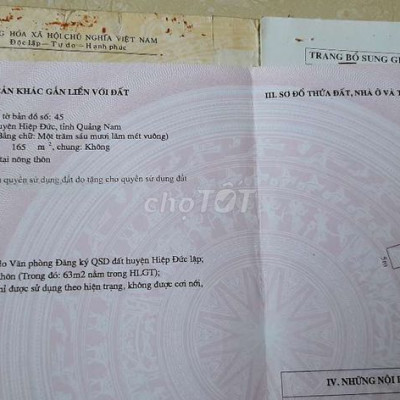 G HÒA XÃ HỘI CHỦ NGHĨA VIỆT NAM
Độc lập - Tự do - Hạnh phúc
TRANG BỔ SUNG GI
SẢN KHÁC GẮN LIỀN VỚI ĐẤT
tờ bản đồ số: 45
uyện Hiệp Đức, tỉnh Quảng Nam
bằng chữ: Một trăm sáu mươi lăm mét vuông)
165 m², chung: Không
tại nông thôn
quyền sử dụng đất do tặng cho quyền sử dụng đất
do Văn phòng Đăng ký QSD đất huyện Hiệp Đức lập;
thôn (Trong đó: 63m2 nằm trong HLGT);
hỉ được sử dụng theo hiện trạng, không được cơi nới,
III. SƠ ĐỒ THỬA ĐẤT, NHÀ Ở VÀ T
IV. NHỮNG NỘI D
chợTỐT